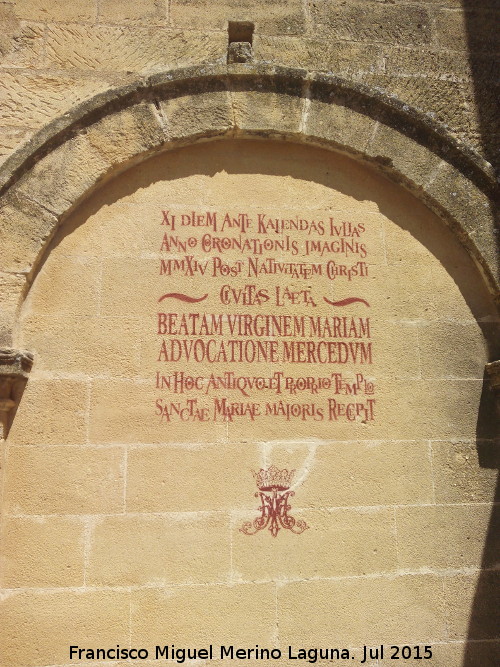 XI DIEM ANTE KALENDAS IVLIAS
ANNO CORONATIONIS IMAGINIS
MMXIV POST NATIVITATEM CHRISTI
CIVITAS LAETA
BEATAM VIRGINEM MARIAM
ADVOCATIONE MERCEDVM
IN HOC ANTIQVO ET PROPRIO TEMPLO
SANCTAE MARIAE MAIORIS RECEPIT
Francisco Miguel Merino Laguna. Jul 2015